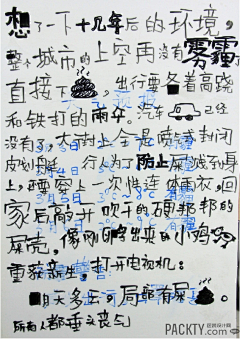 想了一下十几年后的环境，
城市的上空再没有雾霾
直接下，出行要着高跷
和铁打的雨伞。汽车已经
没有了，大街上全是喷气式封闭
皮划艇。行人为了防止屎溅到身
上，穿上一次性连体雨衣，回
家后敲开吹干的硬邦邦的
屎壳，像刚孵出来的小鸡
重获新生，打开电视机：
明天多云，局部有屎。
所有人都垂头丧气
PACKTY.com